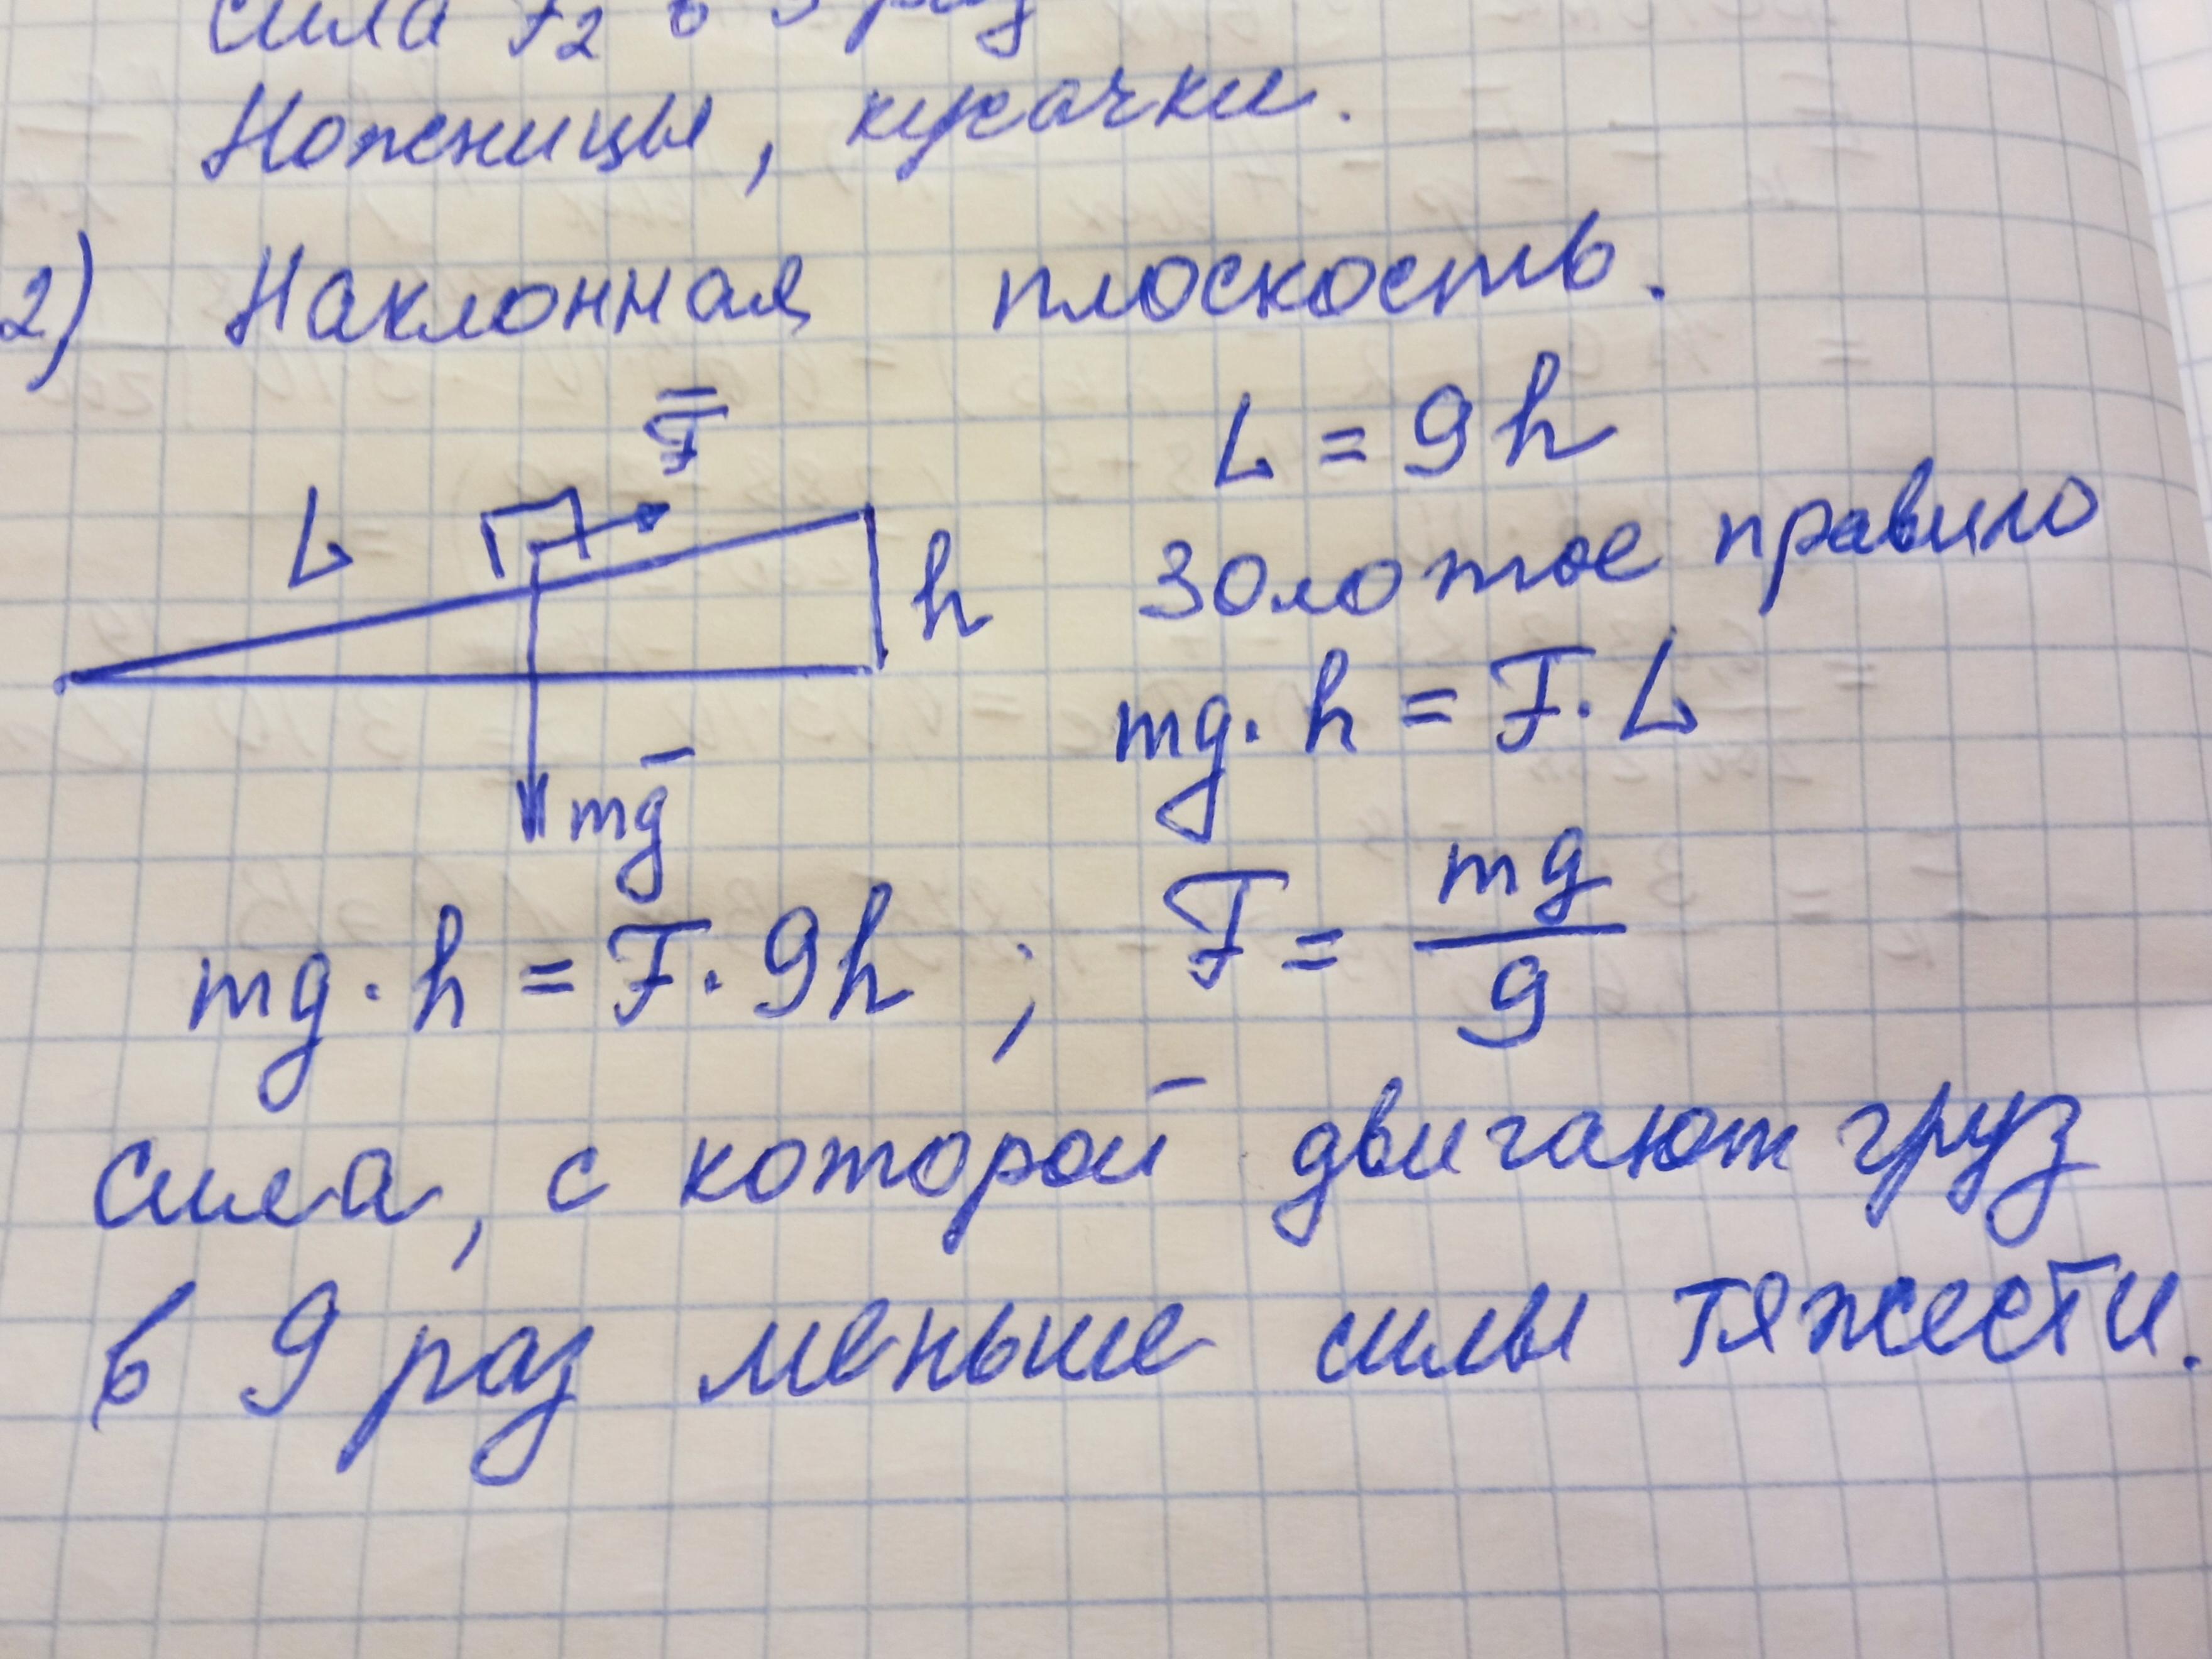 сила F₂ в 9 раз
Ножницы, кусачки.
2) Наклонная плоскость.
F
L = 9h
L
h
золотое правило
mg · h = F · L
mg
mg · h = F · 9h ; F = mg/9
сила, с которой двигают груз
в 9 раз меньше силы тяжести.